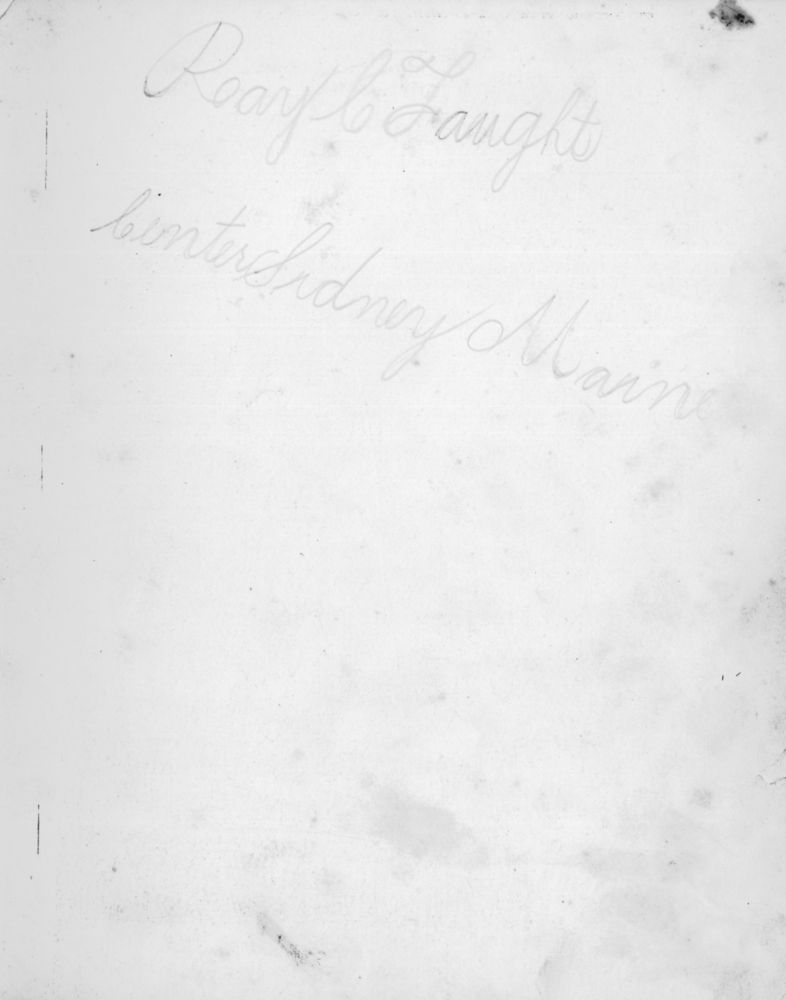 Roay C Faught
Center Sidney Maine